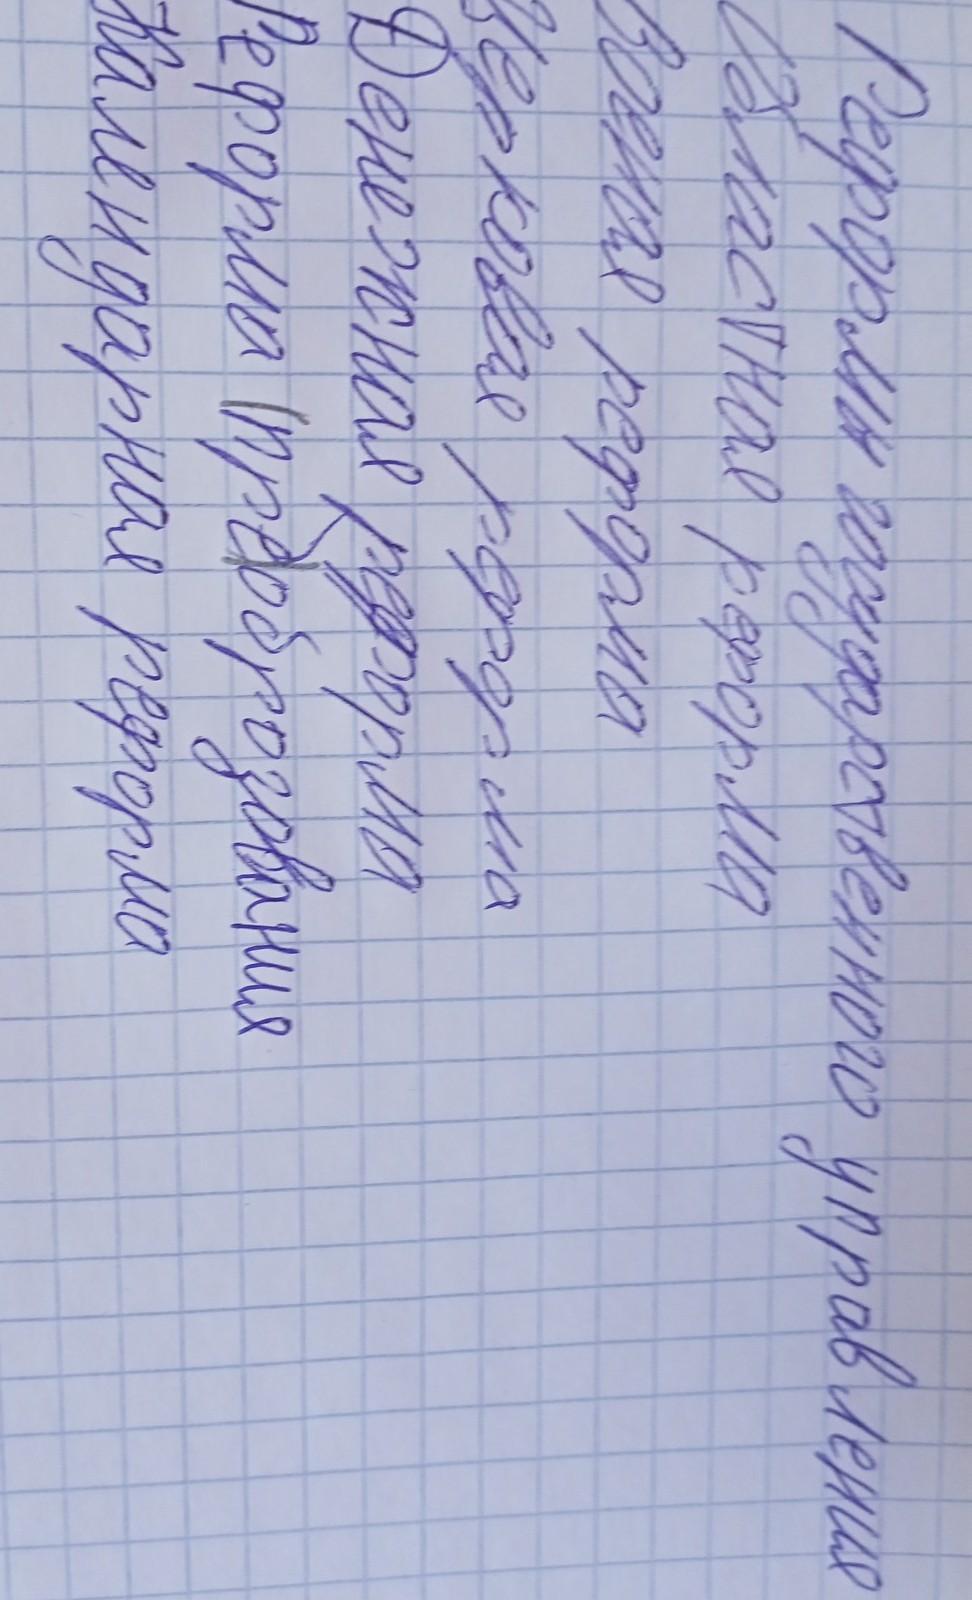 Реформы государственного управления
Областная реформа
Военая реформа
Церковная реформа
Денежная реформа
Реформа преобразования
Календарная реформа